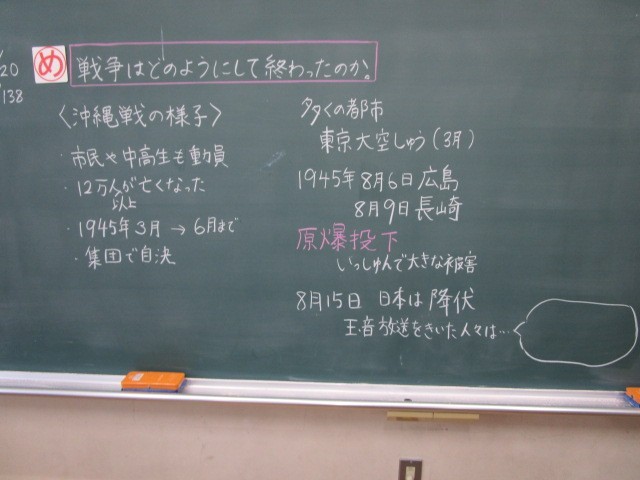 /20
138
め 戦争はどのようにして終わったのか。
〈沖縄戦の様子〉
・市民や中高生も動員
・12万人が亡くなった
以上
・1945年3月→6月まで
・集団で自決
多くの都市
東京大空しゅう(3月)
1945年8月6日広島
8月9日長崎
原爆投下
いっしゅんで大きな被害
8月15日 日本は降伏
玉音放送をきいた人々は…